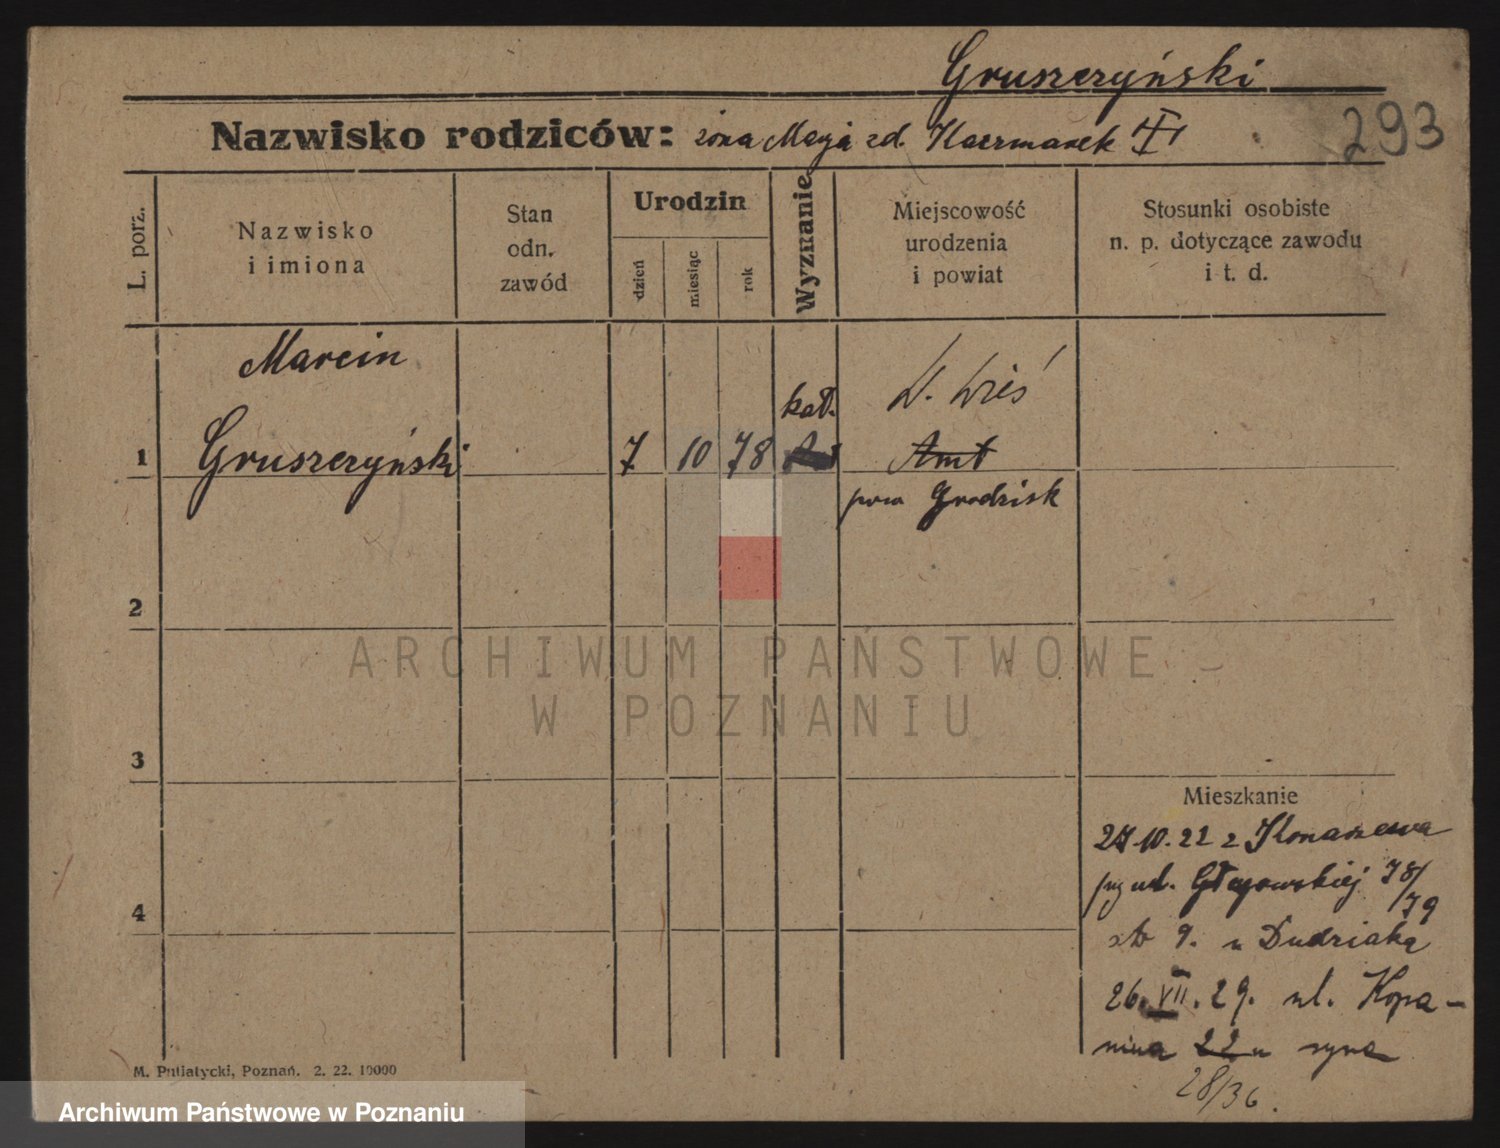 Gruszczyński
293
Nazwisko rodziców: żona Maryja zd. Kaczmarek
L. porz.
Nazwisko
i imiona
Stan
odn.
zawód
Urodzin
dzień
miesiąc
rok
Wyznanie
Miejscowość
urodzenia
i powiat
Stosunki osobiste
n. p. dotyczące zawodu
i t. d.
Marcin
kat.
W. Wieś
1 Gruszczyński 7 10 78 Amt
pow Grodzisk
2
ARCHIWUM PAŃSTWOWE
W POZNANIU
3
Mieszkanie
27.10.22 z Konarzewa
przy ul. Głogowskiej 78/
79
9. u Dudziaka
4
26.VII.29. ul. Kopa-
nina 22 u syna
28/36.
M. Putiatycki, Poznań. 2. 22. 10000
Archiwum Państwowe w Poznaniu